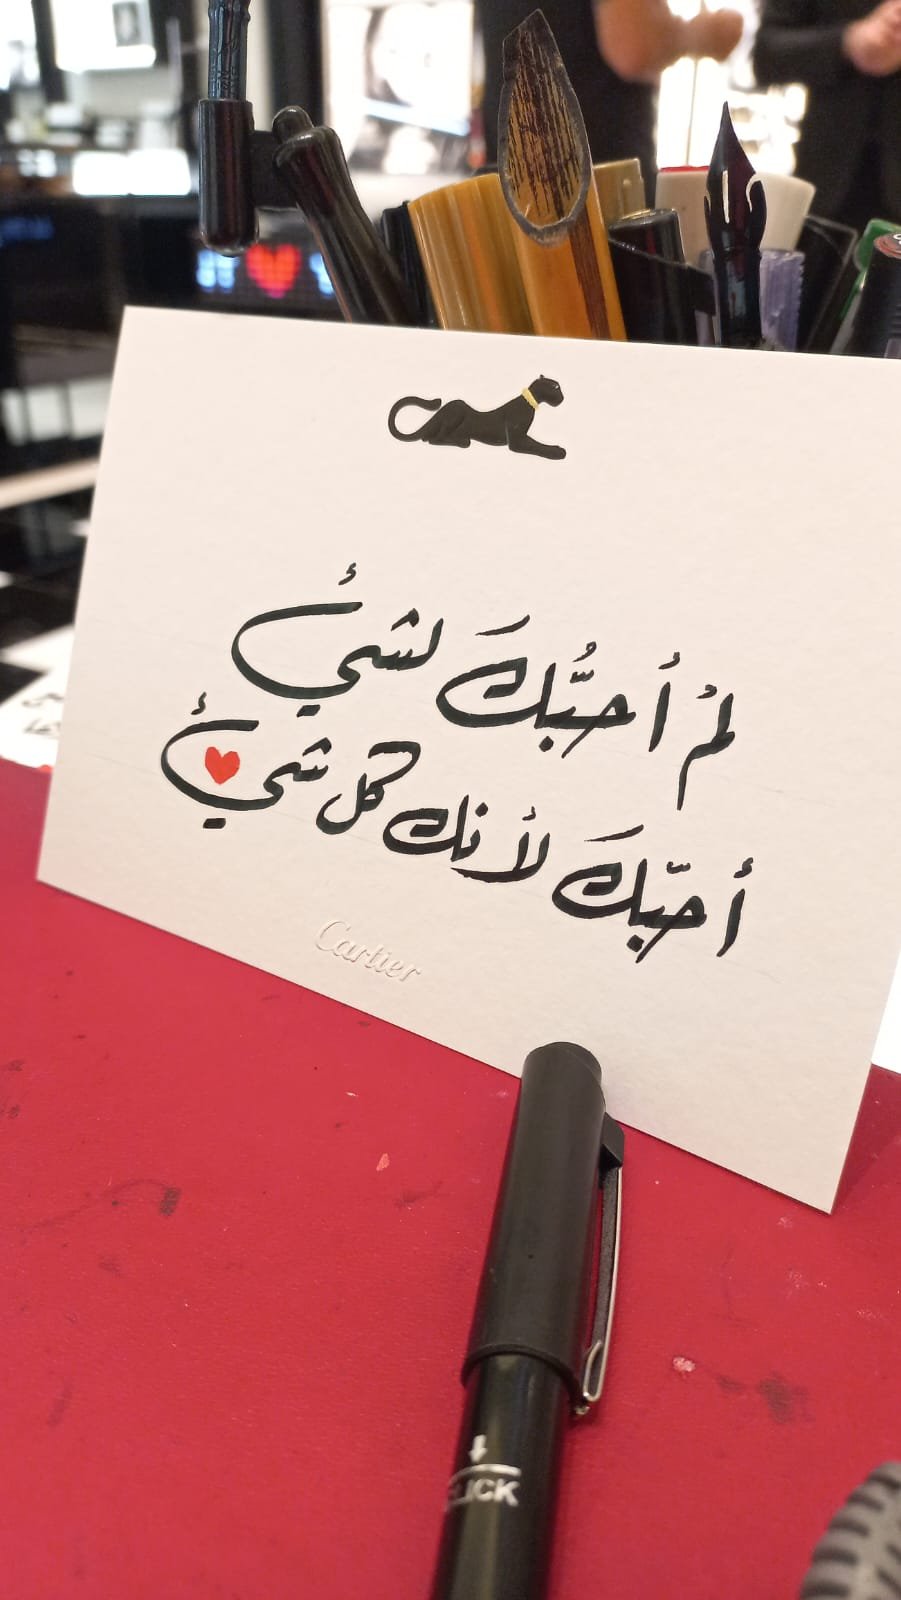 لمْ أُحبُّكَ لشئ
أحبّكَ لأنك كل شئ
Cartier
CLICK